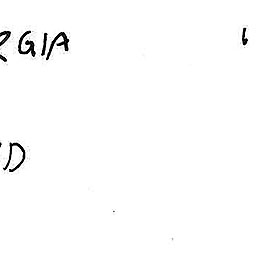 RGIA
D